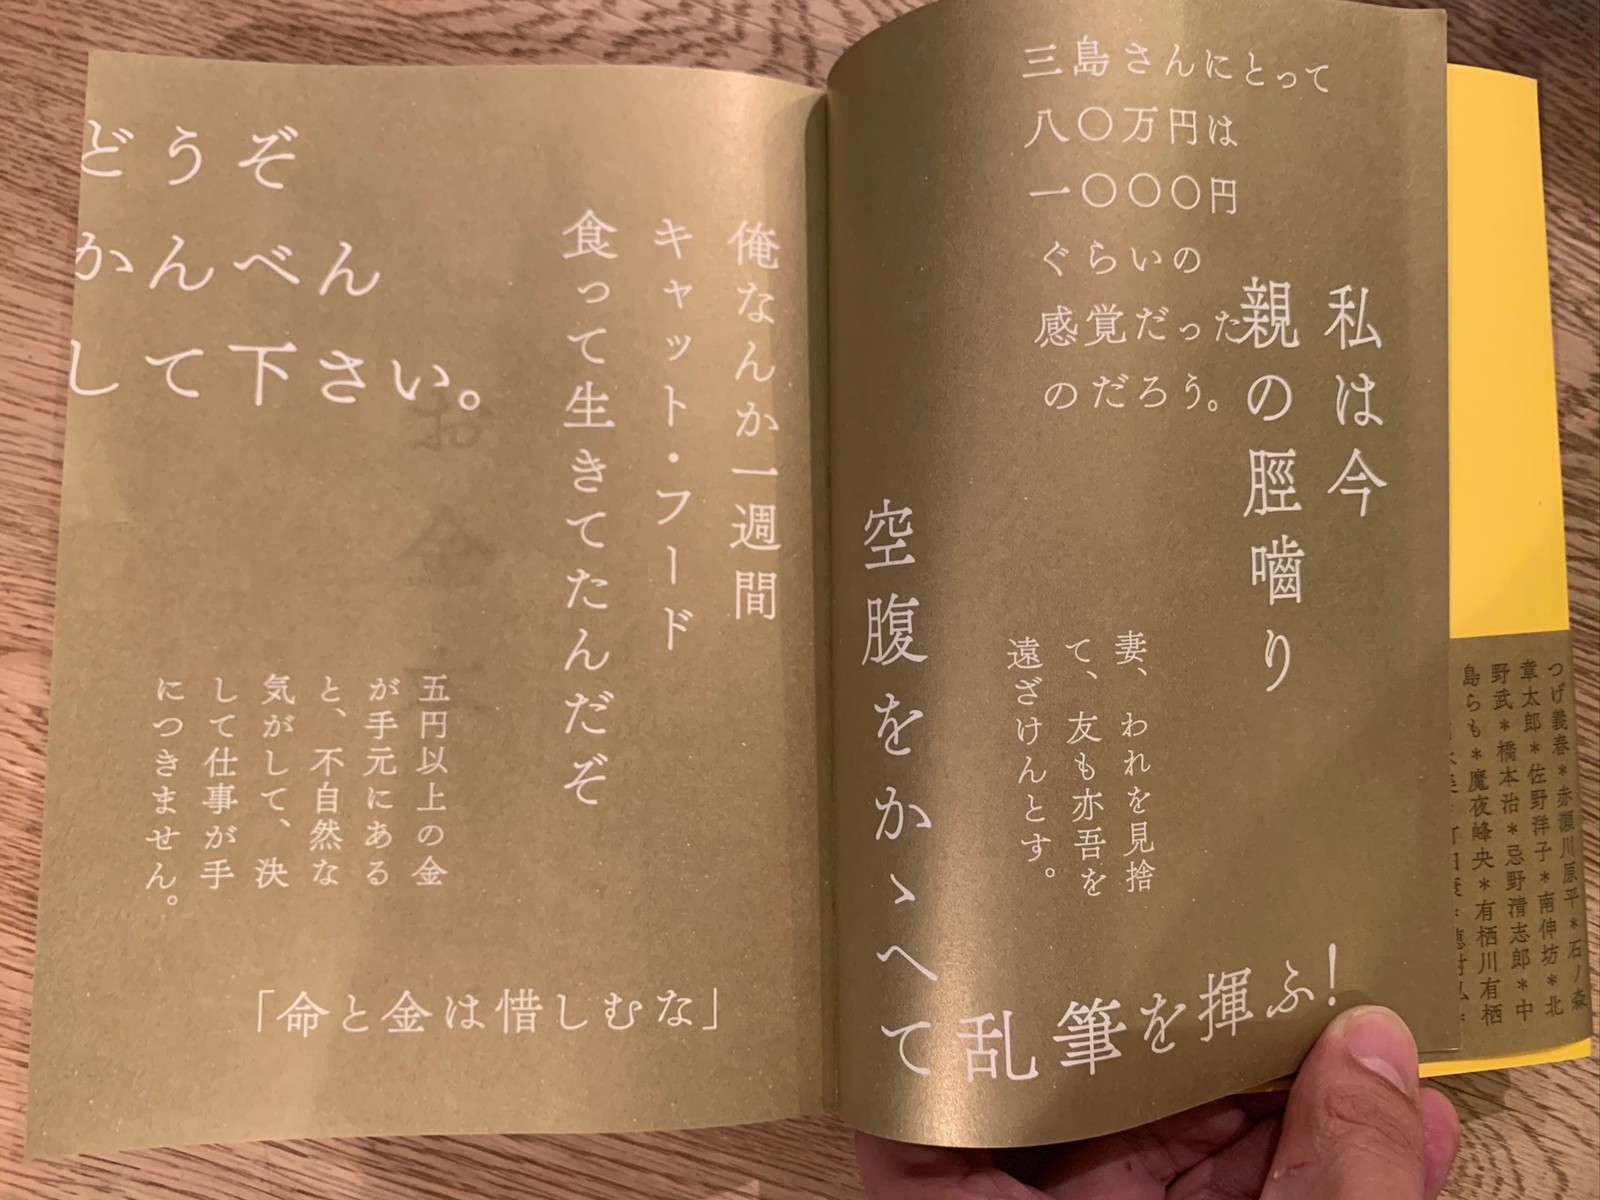 三島さんにとって
八〇万円は
一〇〇〇円
ぐらいの
感覚だった
のだろう。
私は今
親の脛嚙り
妻、われを見捨
て、友も亦吾を
遠ざけんとす。
空腹をかゝへて
乱筆を揮ふ!
どうぞ
かんべん
して下さい。
俺なんか一週間
キャット・フード
食って生きてたんだぞ
五円以上の金
が手元にある
と、不自然な
気がして、決
して仕事が手
につきません。
「命と金は惜しむな」
お金本
つげ義春*赤瀬川原平*石ノ森
章太郎*佐野洋子*南伸坊*北
野武*橋本治*忌野清志郎*中
島らも*魔夜峰央*有栖川有栖